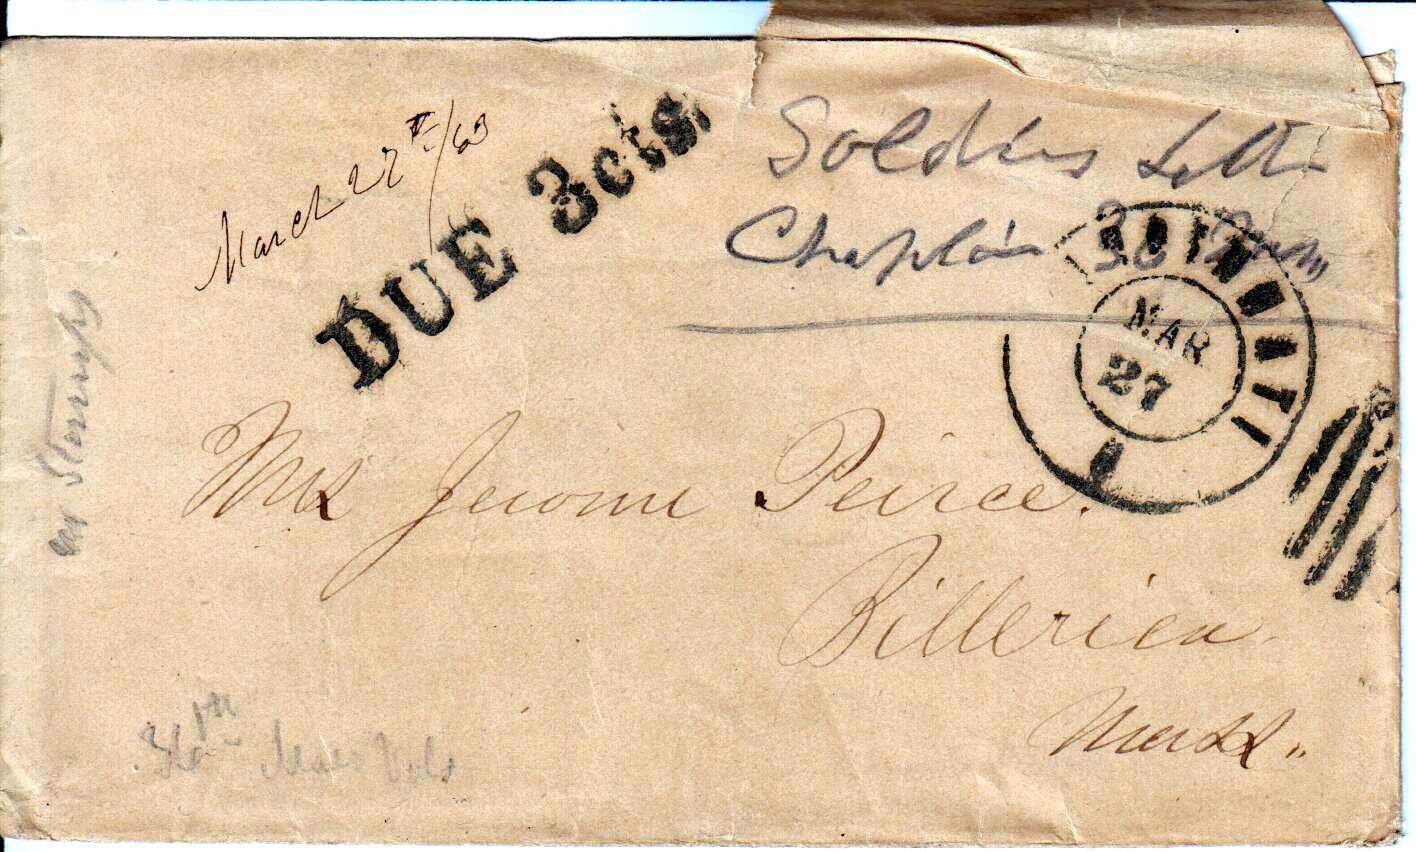 March 27th/63
DUE 3cts.
Soldiers Letter
Chaplain 36 Mass
CINCINNATI
MAR
27
Mrs Jerome Peirce.
Billerica
Mass.
no Stamps
36th Mass Vols